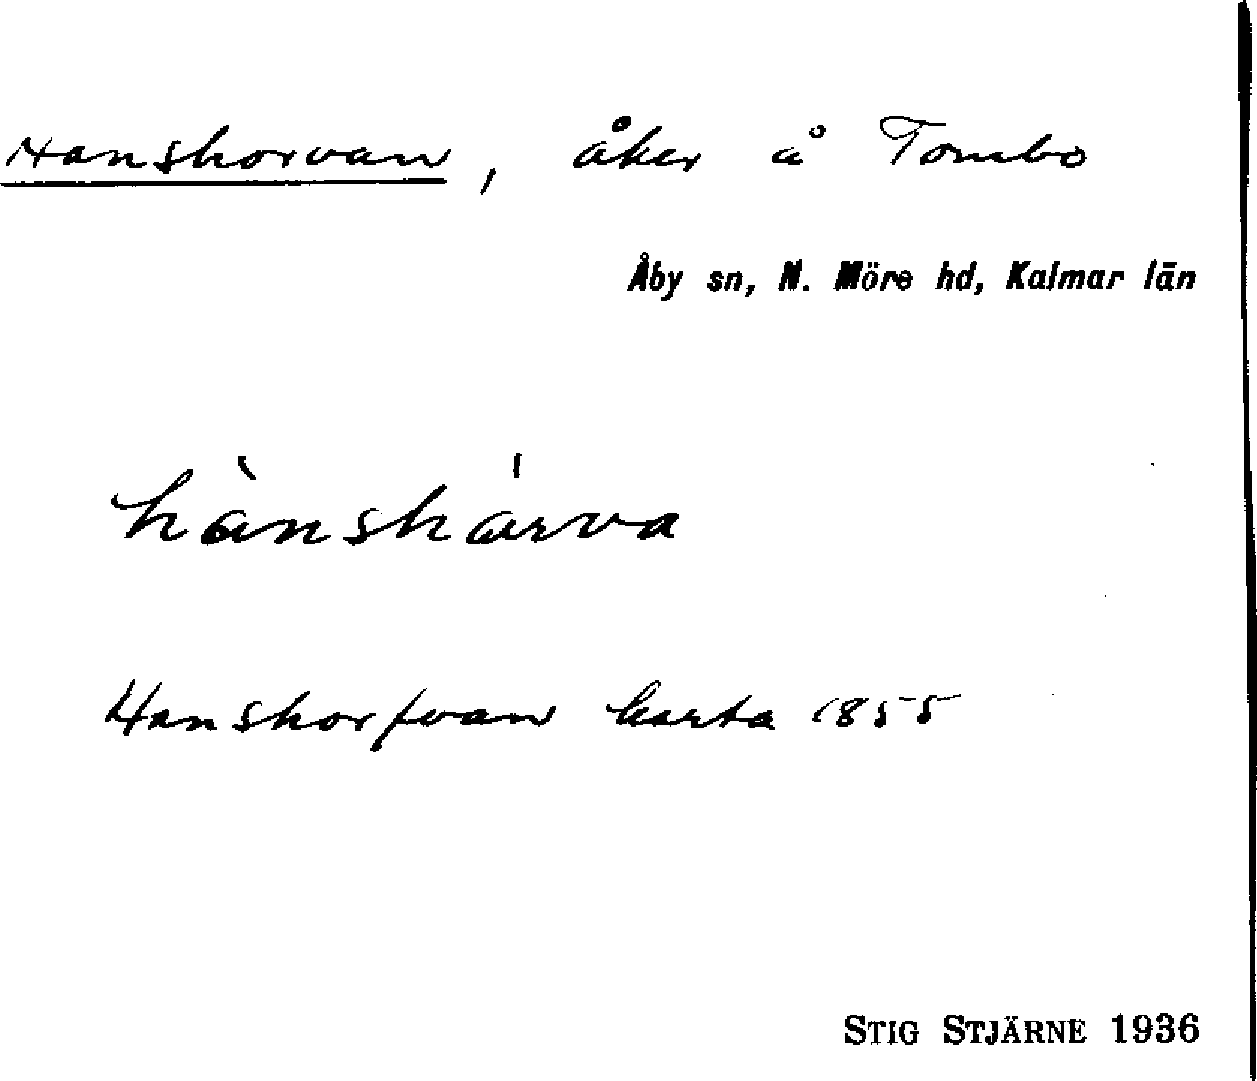 Hanshorvan, åker å Tombo
Åby sn, N. Möre hd, Kalmar län
hànshárva
Hanshorfvan karta 1855
STIG STJÄRNE 1936